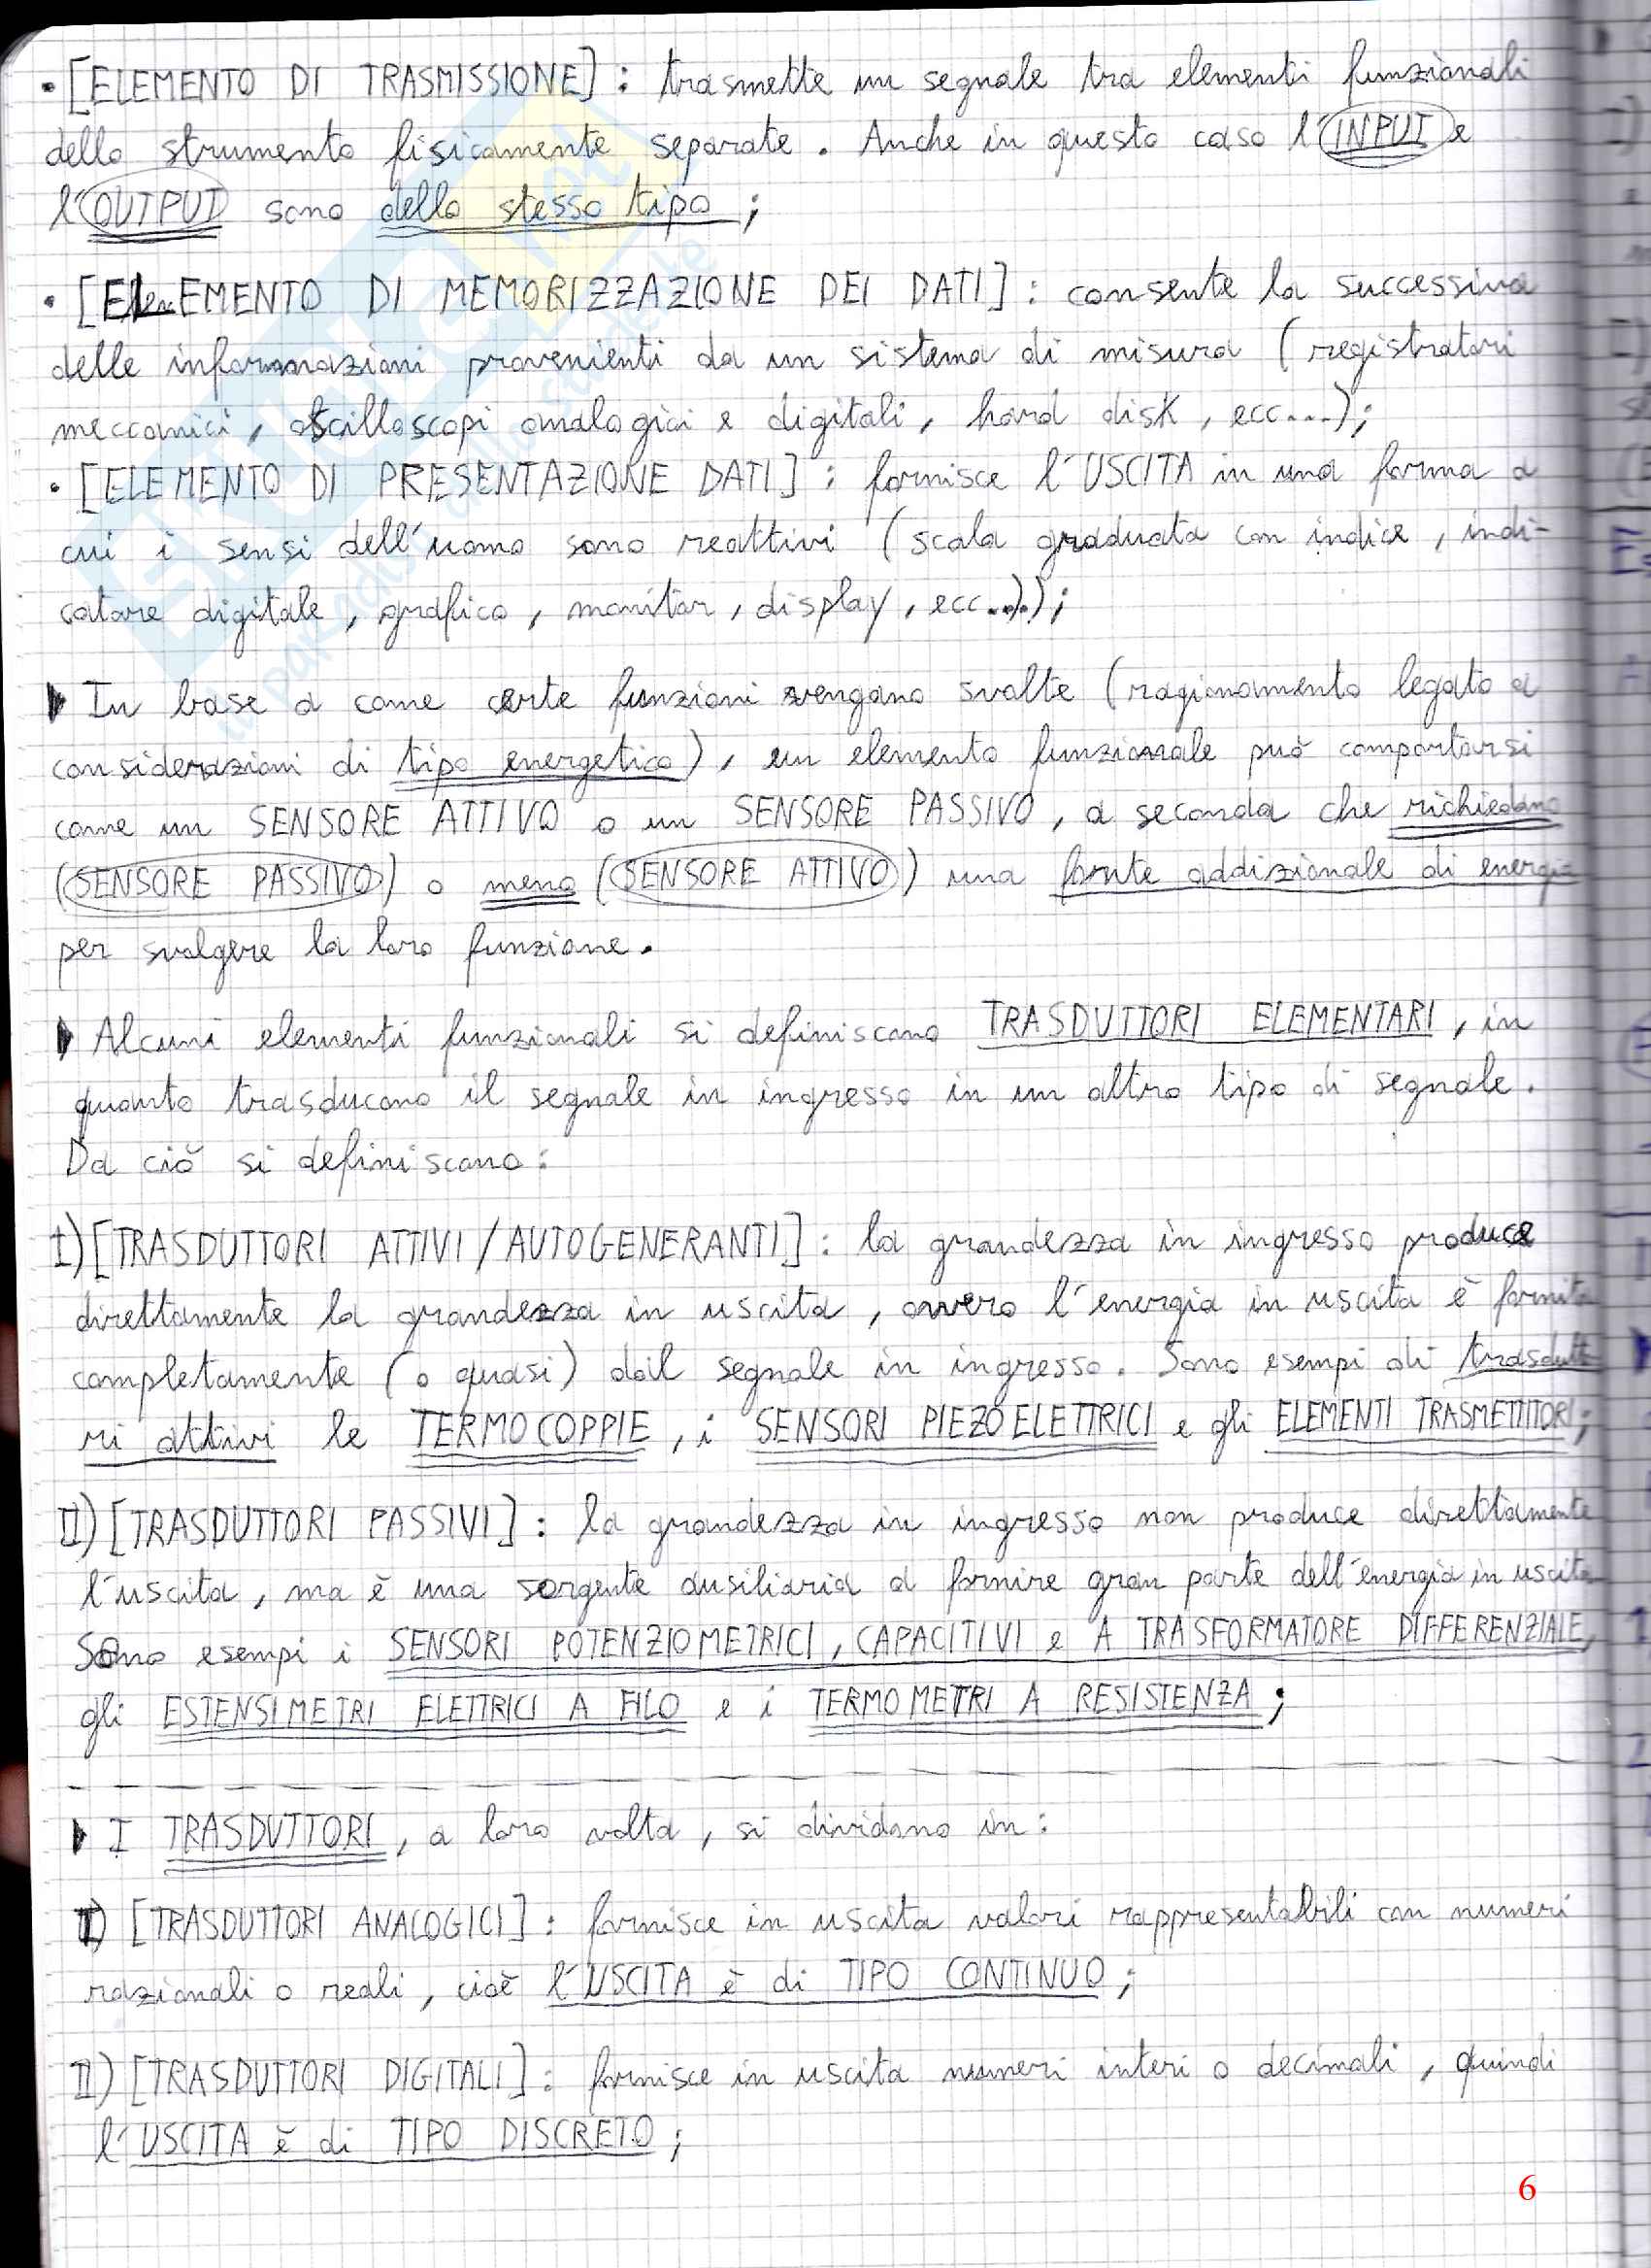 • [ELEMENTO DI TRASMISSIONE] : trasmette un segnale tra elementi funzionali
dello strumento fisicamente separate. Anche in questo caso l'INPUT e
l'OUTPUT sono dello stesso tipo ;
• [ELEMENTO DI MEMORIZZAZIONE DEI DATI] : consente la successiva
delle informazioni provenienti da un sistema di misura (registratori
meccanici, oscilloscopi analogici e digitali, hard disk, ecc...);
• [ELEMENTO DI PRESENTAZIONE DATI] : fornisce l'USCITA in una forma a
cui i sensi dell'uomo sono reattivi (scala graduata con indice, indi-
catore digitale, grafico, monitor, display, ecc...));
▶ In base a come certe funzioni vengono svolte (ragionamento legato a
considerazioni di tipo energetico), un elemento funzionale può comportarsi
come un SENSORE ATTIVO o un SENSORE PASSIVO, a seconda che richiedano
(SENSORE PASSIVO) o meno (SENSORE ATTIVO) una fonte addizionale di energia
per svolgere la loro funzione.
▶ Alcuni elementi funzionali si definiscono TRASDUTTORI ELEMENTARI, in
quanto trasducono il segnale in ingresso in un altro tipo di segnale.
Da ciò si definiscono:
I) [TRASDUTTORI ATTIVI/AUTOGENERANTI] : la grandezza in ingresso produce
direttamente la grandezza in uscita, ovvero l'energia in uscita è fornita
completamente (o quasi) dal segnale in ingresso. Sono esempi di trasdutto
ri attivi le TERMOCOPPIE, i SENSORI PIEZOELETTRICI e gli ELEMENTI TRASMETTITORI;
II) [TRASDUTTORI PASSIVI] : la grandezza in ingresso non produce direttamente
l'uscita, ma è una sorgente ausiliaria a fornire gran parte dell'energia in uscita
Sono esempi i SENSORI POTENZIOMETRICI, CAPACITIVI e A TRASFORMATORE DIFFERENZIALE,
gli ESTENSIMETRI ELETTRICI A FILO e i TERMOMETRI A RESISTENZA ;
▶ I TRASDUTTORI, a loro volta, si dividono in:
I) [TRASDUTTORI ANALOGICI] : fornisce in uscita valori rappresentabili con numeri
razionali o reali, cioè l'USCITA è di TIPO CONTINUO ;
II) [TRASDUTTORI DIGITALI] : fornisce in uscita numeri interi o decimali, quindi
l'USCITA è di TIPO DISCRETO ;
6